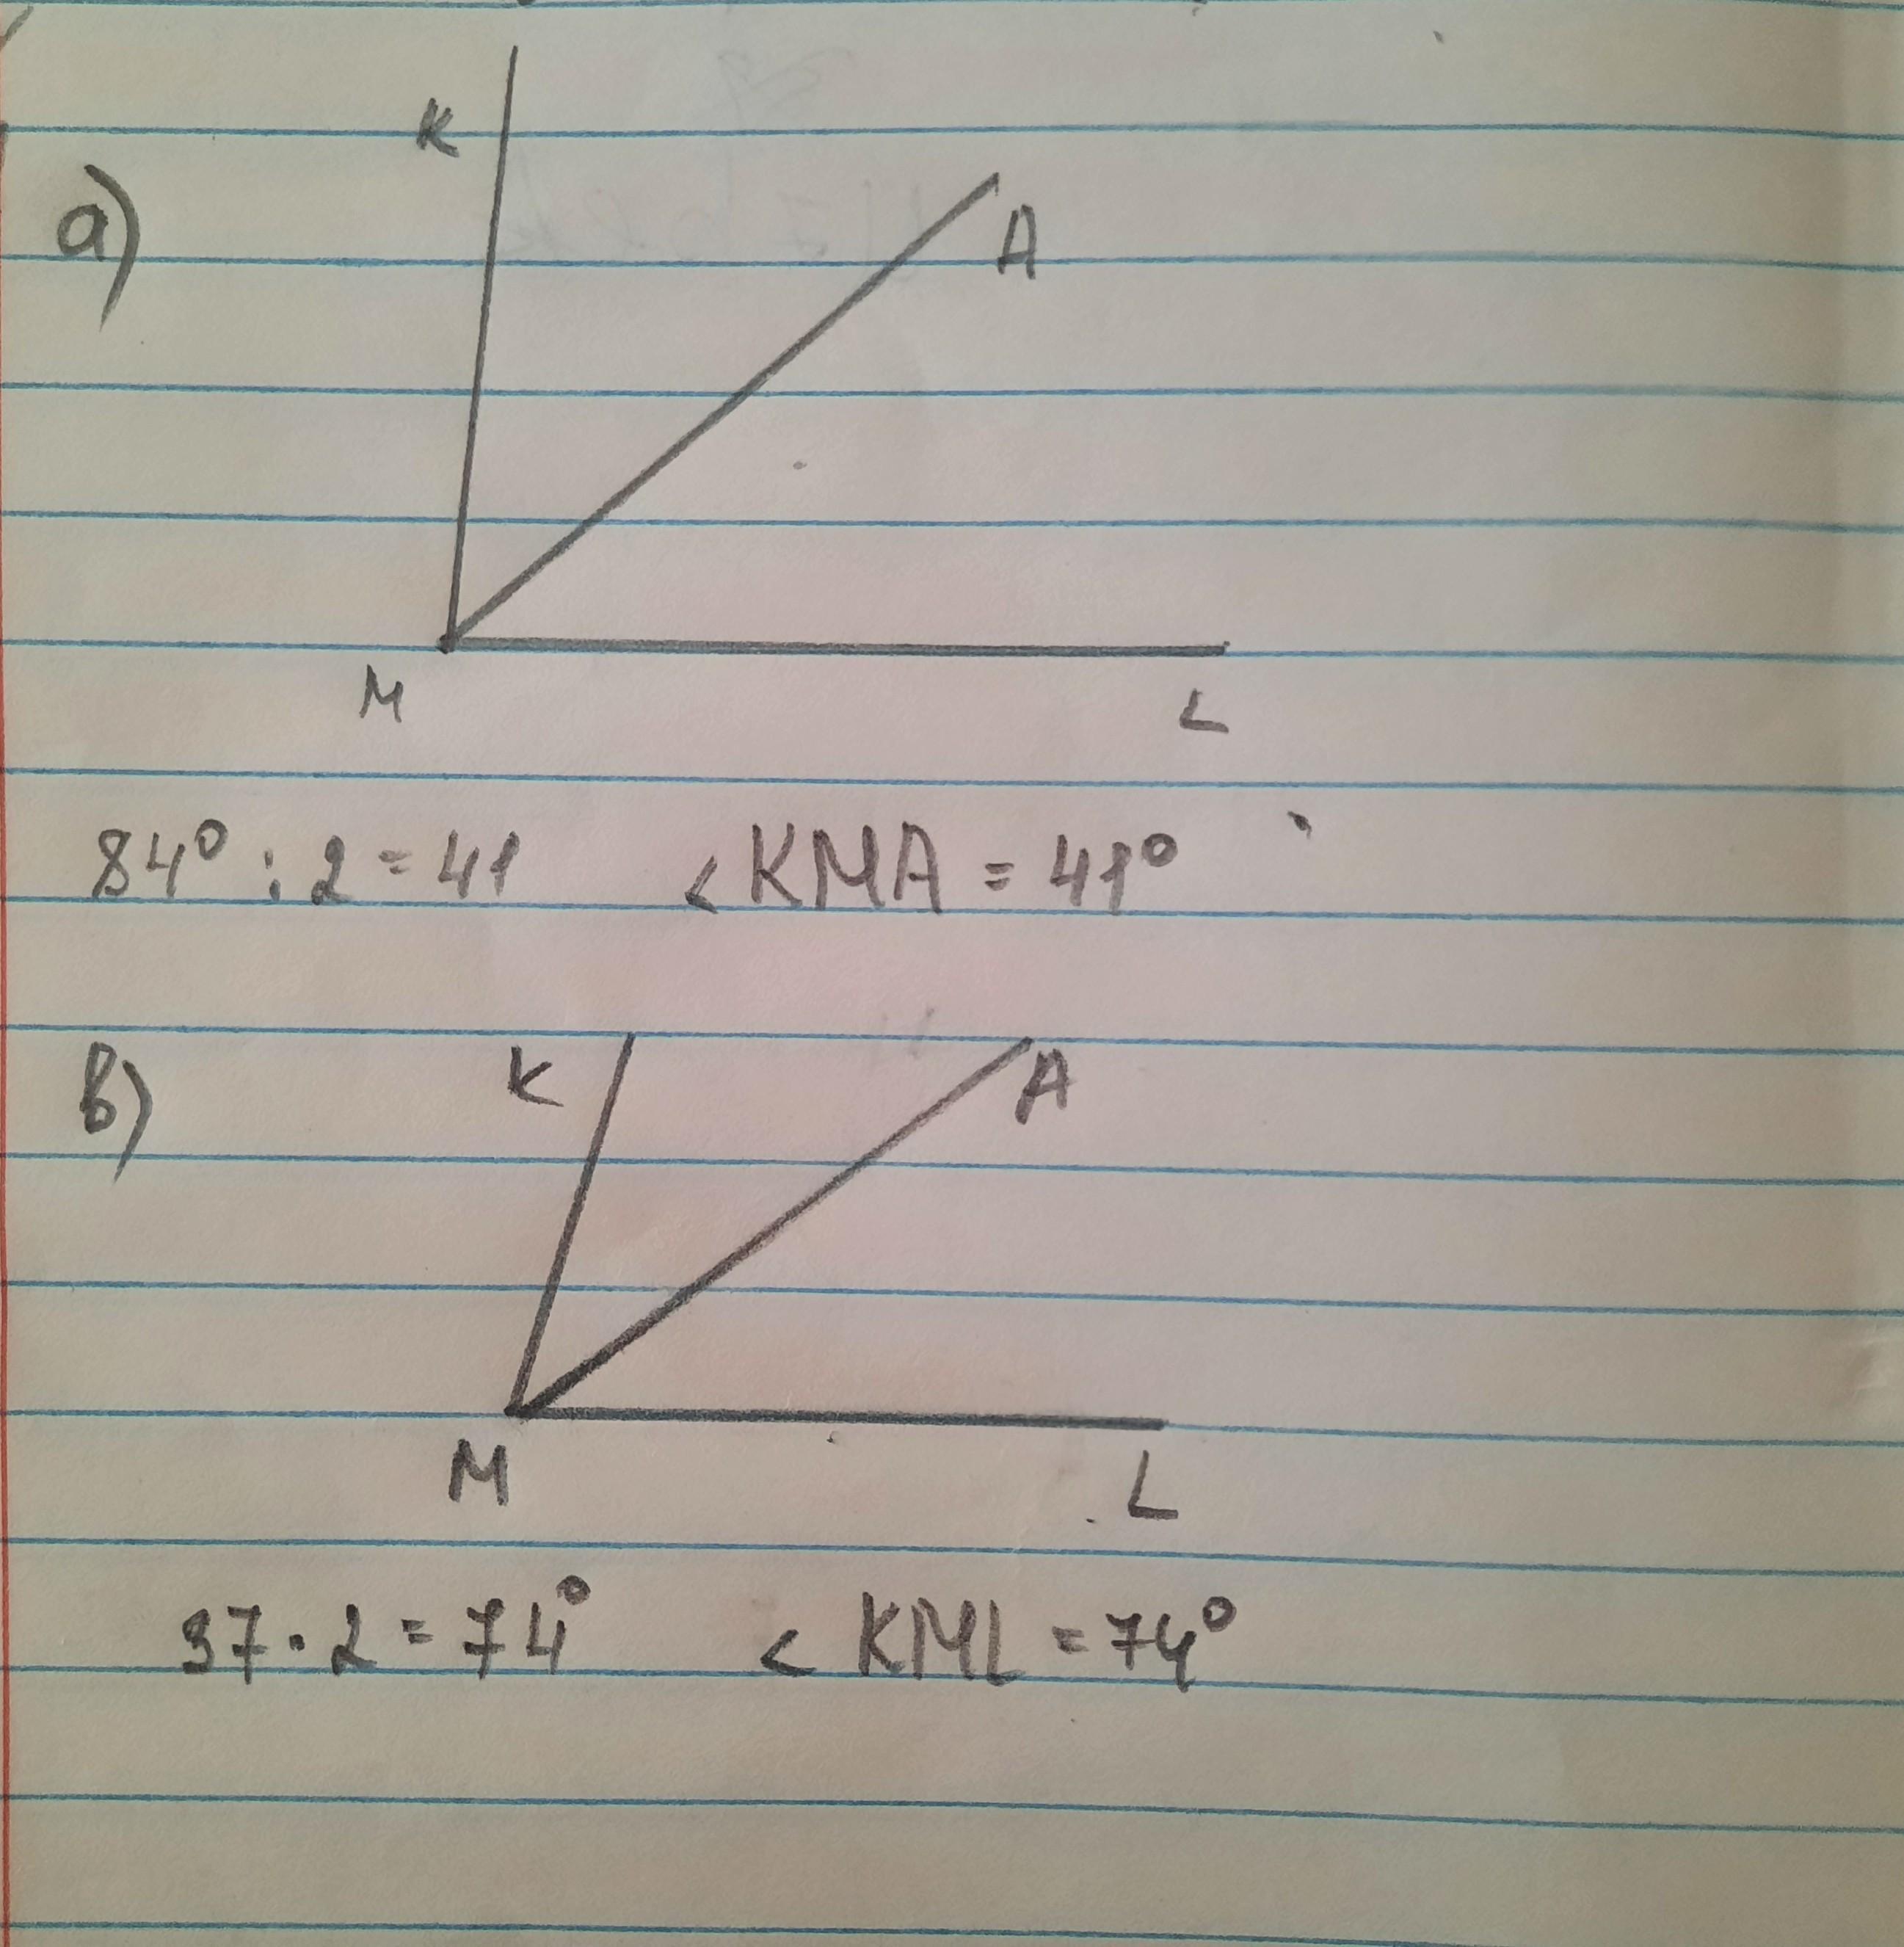 a)
K
A
M L
84° : 2 = 41 < KMA = 41°
в)
K A
M L
37 · 2 = 74° < KML = 74°